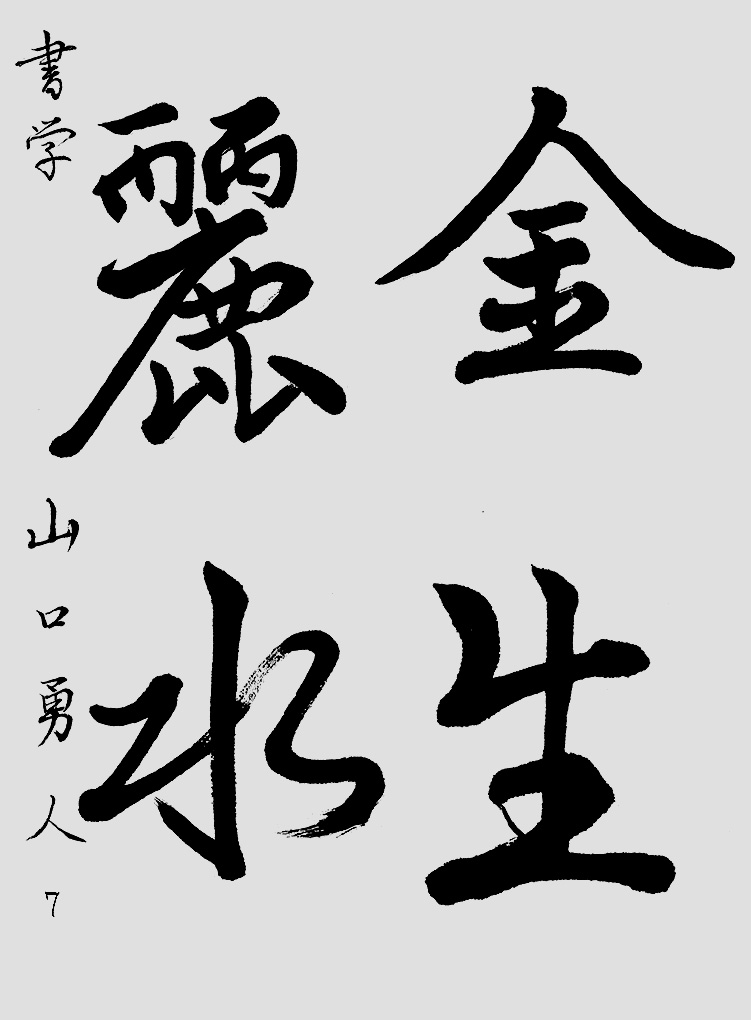 金生
麗水
書学 山口勇人 7